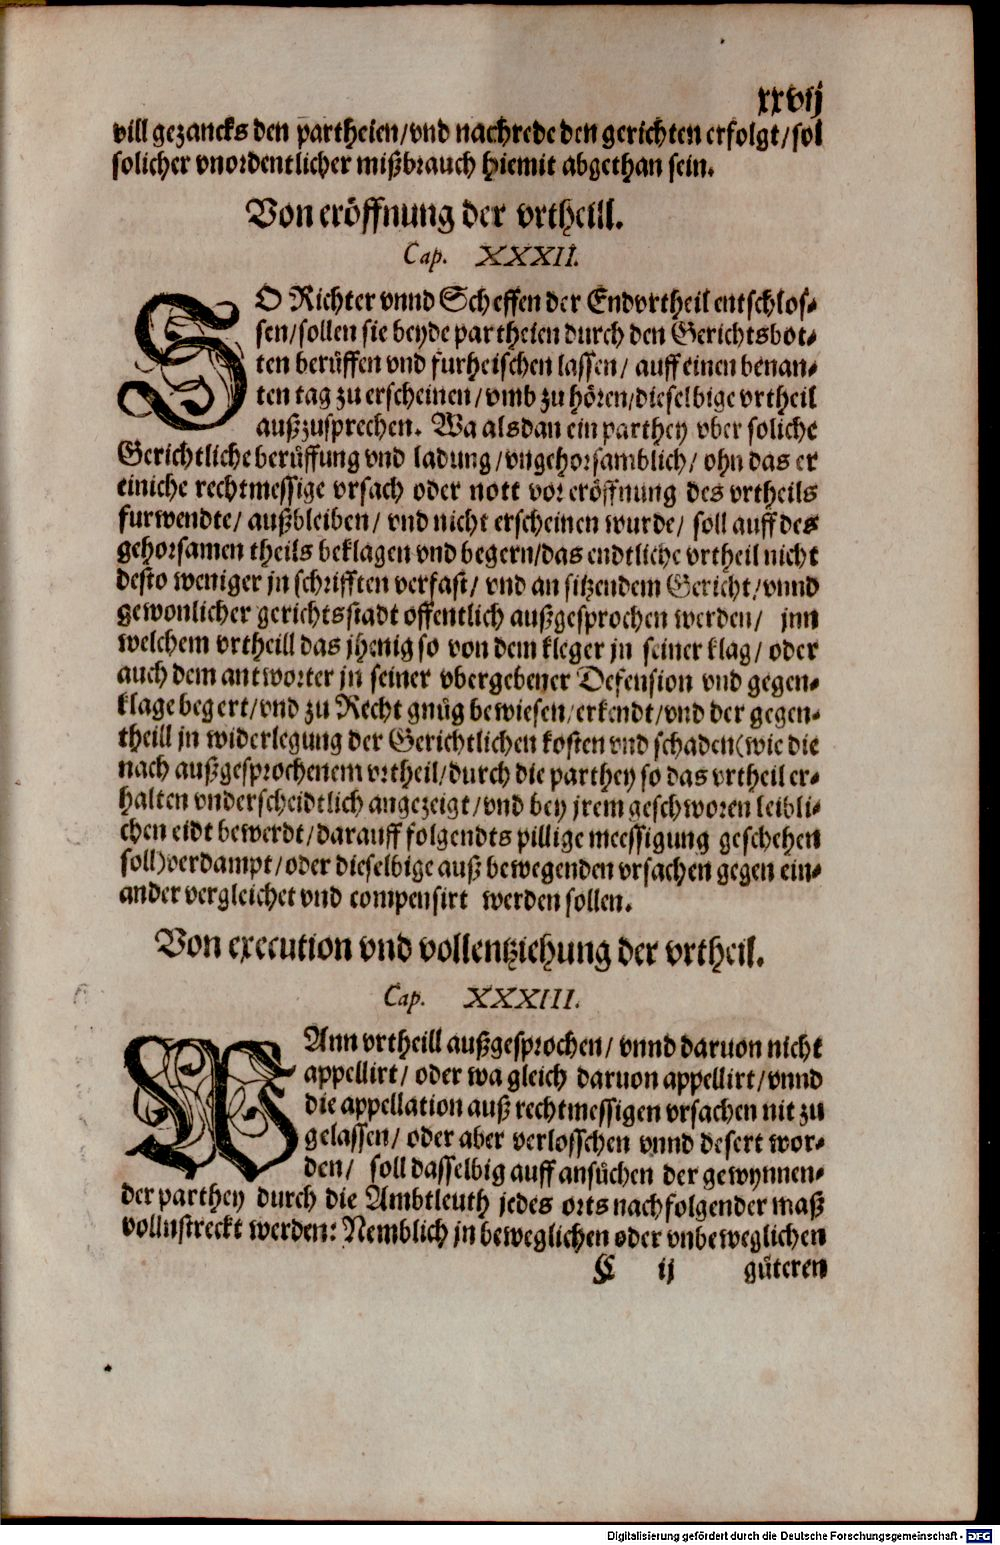 xxvij
vill gezancks den partheien/vnd nachrede den gerichten erfolgt/sol
solicher vnordentlicher mißbrauch hiemit abgethan sein.
Von eröffnung der vrtheill.
Cap. XXXII.
SO Richter vnnd Scheffen der Endvrtheil entschlos-
sen/sollen sie beyde partheien durch den Gerichtsbot-
ten berüffen vnd furheischen lassen/ auff einen benan-
ten tag zu erscheinen/vmb zu hören/dieselbige vrtheil
außzusprechen. Wa alsdan ein parthey vber soliche
Gerichtliche berüffung vnd ladung/vngehorsamblich/ ohn das er
einiche rechtmessige vrsach oder nott vor eröffnung des vrtheils
furwendte/ außbleiben/ vnd nicht erscheinen wurde/ soll auff des
gehorsamen theils beklagen vnd begern/das endtliche vrtheil nicht
desto weniger jn schrifften verfast/ vnd an sitzendem Gericht/vnnd
gewonlicher gerichtsstadt offentlich außgesprochen werden/ jnn
welchem vrtheill das jhenig so von dem kleger jn seiner klag/ oder
auch dem antworter jn seiner vbergebener Defension vnd gegen-
klage begert/vnd zu Recht gnüg bewiesen/erkendt/vnd der gegen-
theill jn widerlegung der Gerichtlichen kosten vnd schaden(wie die
nach außgesprochenem vrtheil/durch die parthey so das vrtheil er-
halten vnderscheidtlich angezeigt/vnd bey jrem geschworen leibli-
chen eidt bewerdt/darauff folgendts pillige meessigung geschehen
soll)verdampt/oder dieselbige auß bewegenden vrsachen gegen ein-
ander vergleichet vnd compensirt werden sollen.
Von execution vnd vollentziehung der vrtheil.
Cap. XXXIII.
WAnn vrtheill außgesprochen/ vnnd daruon nicht
appellirt/ oder wa gleich daruon appellirt/vnnd
die appellation auß rechtmessigen vrsachen nit zu
gelassen/ oder aber verlosschen vnnd desert wor-
den/ soll dasselbig auff ansüchen der gewynnen-
der parthey durch die Ambtleuth jedes orts nachfolgender maß
vollnstreckt werden: Nemblich jn beweglichen oder vnbeweglichen
E ij güteren
Digitalisierung gefördert durch die Deutsche Forschungsgemeinschaft - DFG